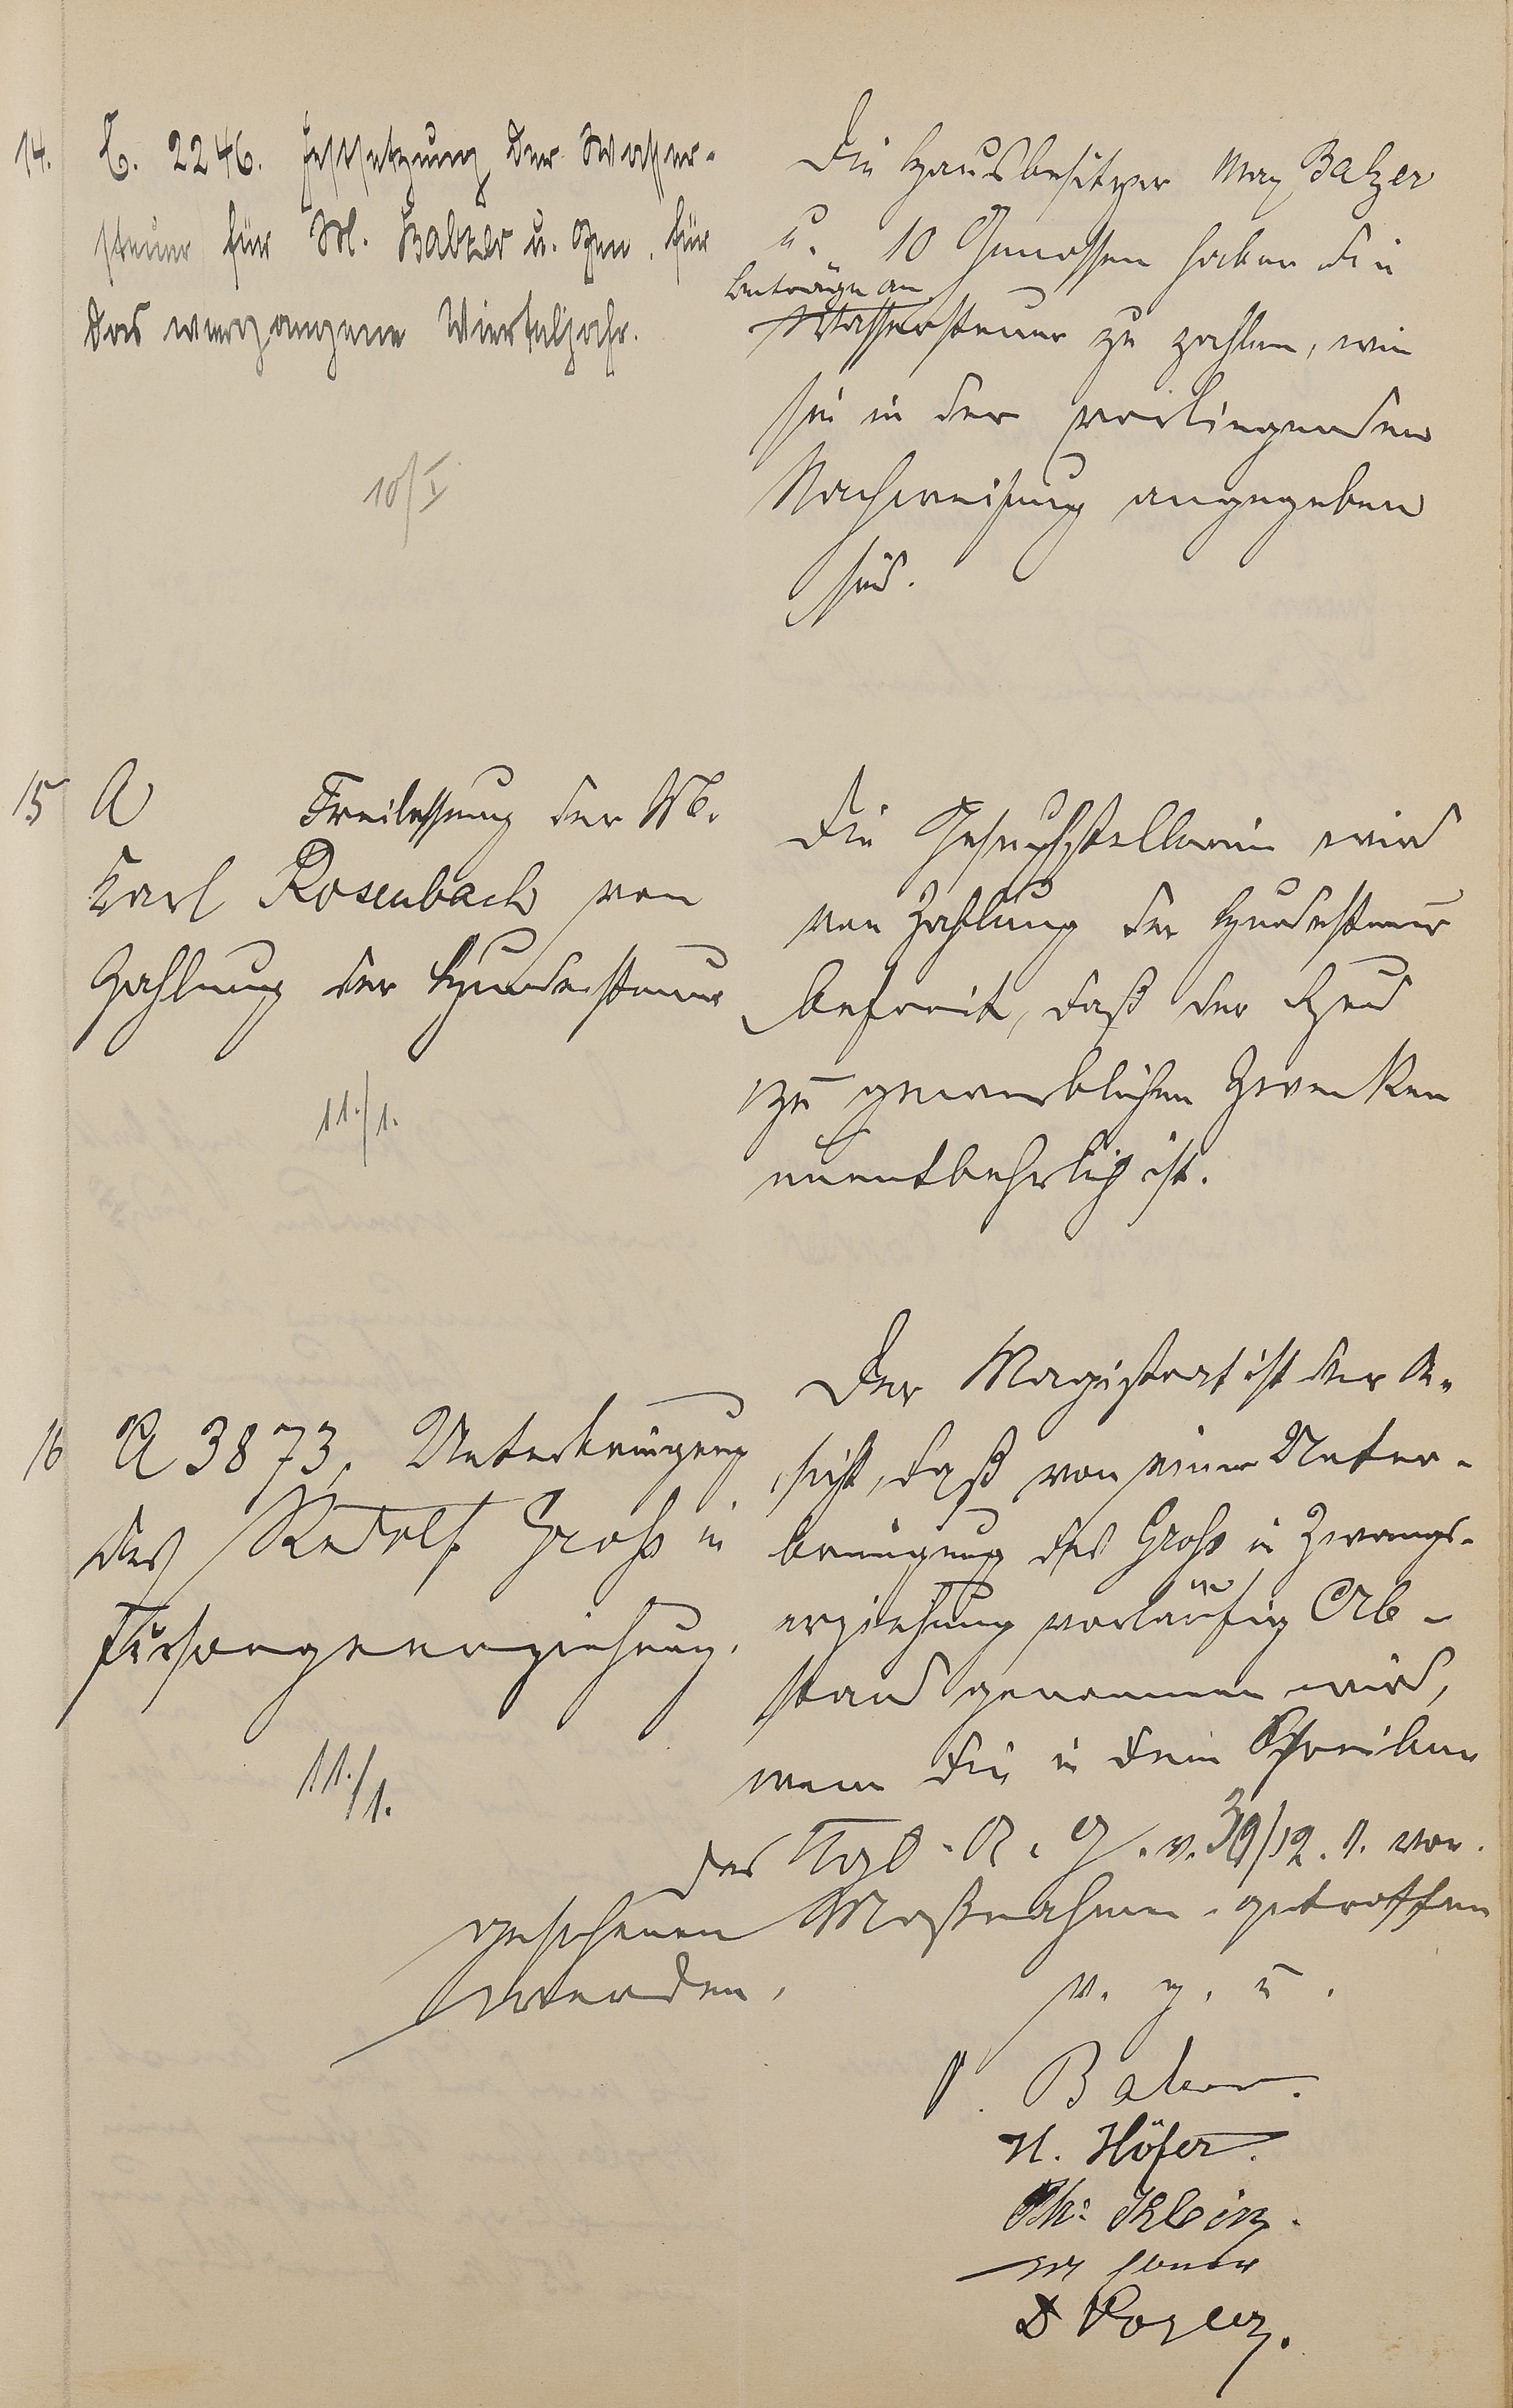 14. C. 2246. Festsetzung der Wasser-
steuer für M. Balzer u. Gen. für
das vergangene Vierteljahr.
10/I
Die Hausbesitzer Max Balzer
u. 10 Genossen haben die
Beträge an
Wassersteuer zu zahlen, wie
sie in der vorliegenden
Nachweisung angegeben
sind.
15 A Freilassung der W.
Karl Rosenbach von
Zahlung der Hundesteuer
11./1.
Die Gesuchstellerin wird
von Zahlung der Hundesteuer
befreit, daß der Hund
zu gewerblichen Zwecken
unentbehrlich ist.
16 A 3873. Unterbringung
des Rudolf Groß in
Fürsorgeerziehung.
11./1.
Der Magistrat ist der A-
sicht, daß von einer Unter-
bringung des Groß in Zwangs-
erziehung vorläufig Ab-
stand genommen wird,
wenn die in dem Schreiben
des Kgl. A. G. v. 30/12. 1. vor-
gesehenen Maßnahmen getroffen
werden.
v. g. u.
H. Höfer.
Ph. Klein.